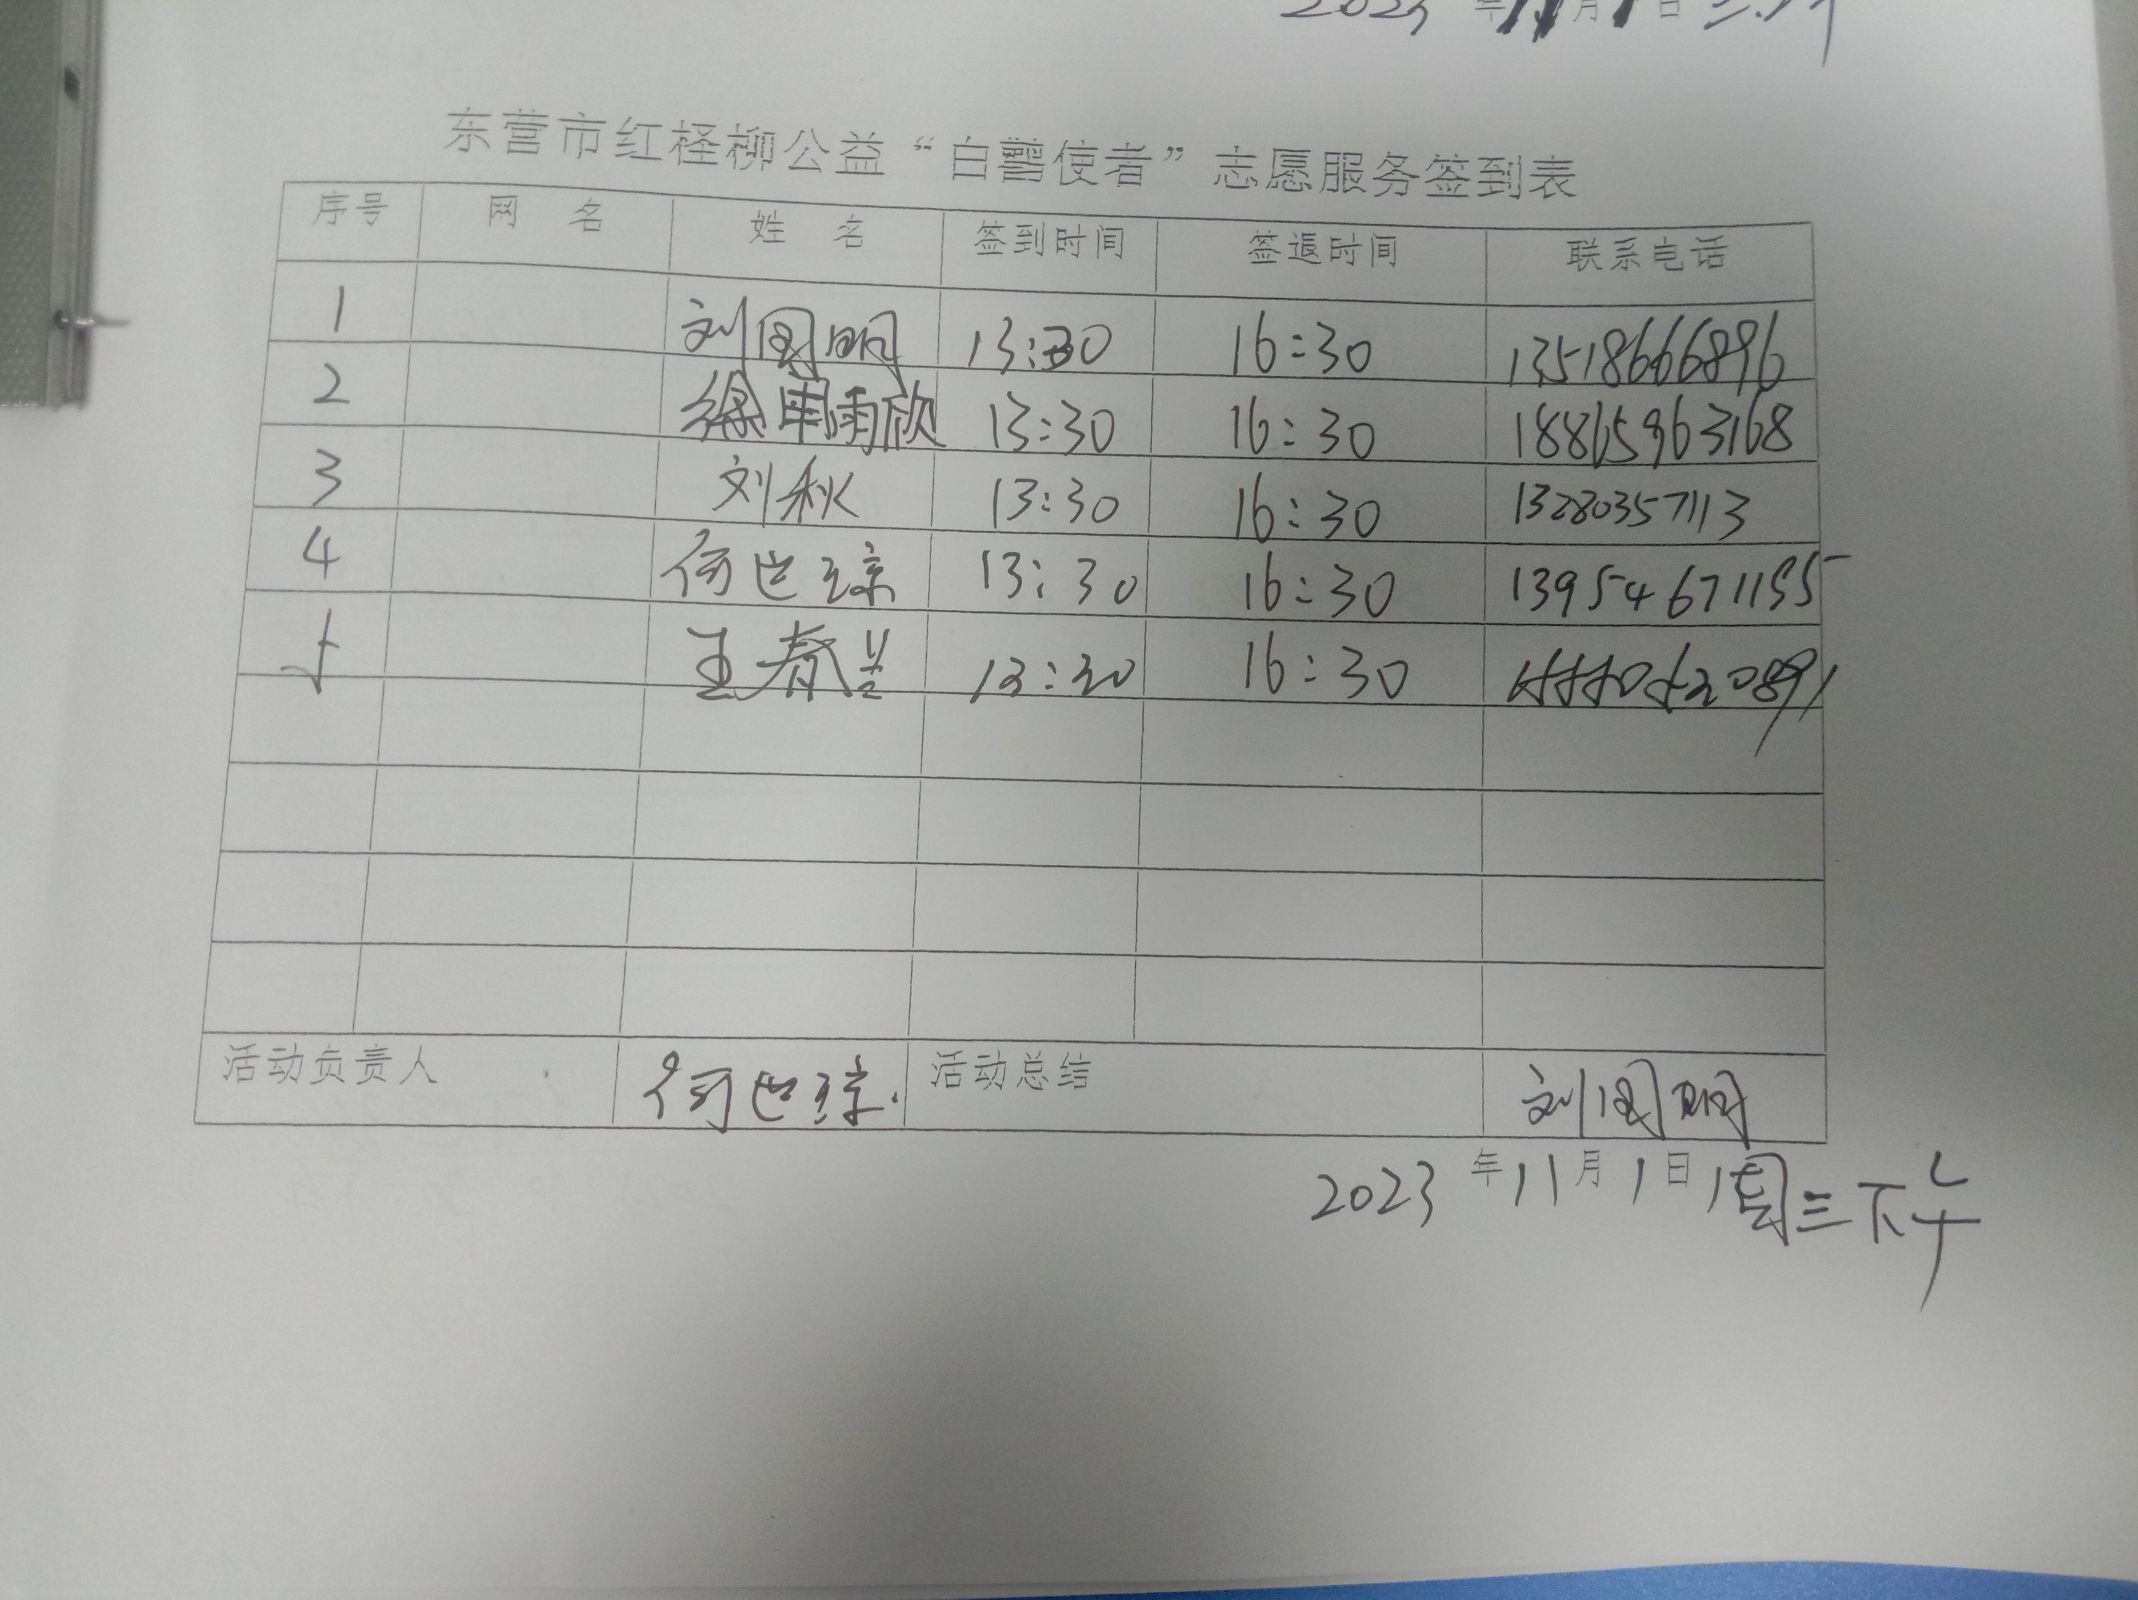 2023 年11月1日
东营市红柽柳公益“白鹭使者”志愿服务签到表
序号 网 名 姓 名 签到时间 签退时间 联系电话
1 刘国明 13:30 16:30 13518666896
2 徐雨欣 13:30 16:30 18865963168
3 刘秋 13:30 16:30 13280357113
4 何世琼 13:30 16:30 13954671155
5 王春兰 13:30 16:30
活动负责人 何世琼 活动总结 刘国明
2023 年11月1日 周三下午